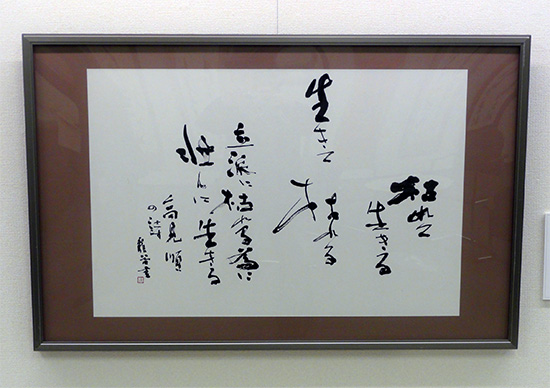 枯れて
生きる
生きて
枯れる
立派に枯れる為に
壮んに生きる
高見順
の詩